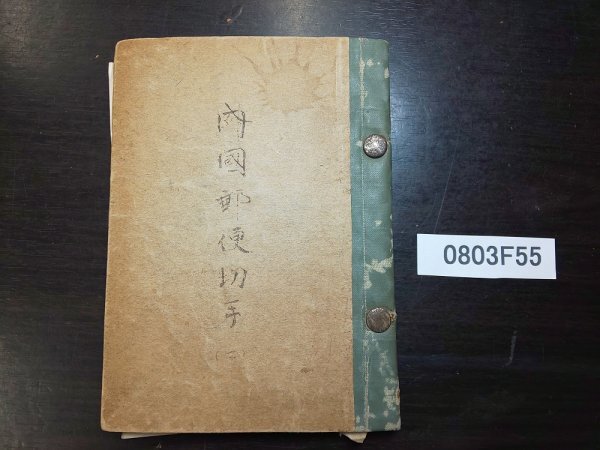 内國郵便切手
(一)
0803F55